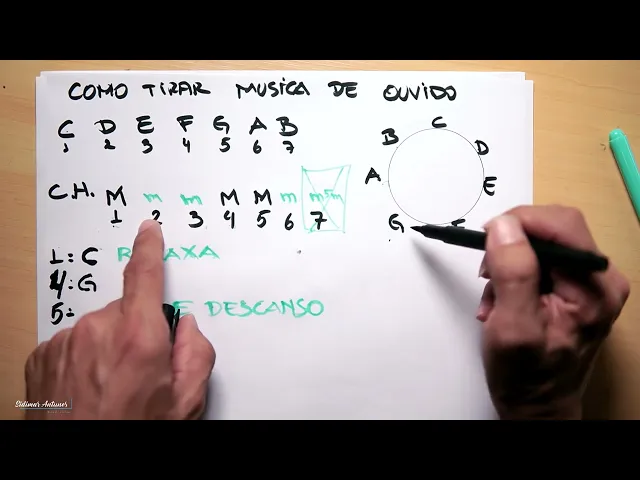 COMO TIRAR MUSICA DE OUVIDO
C D E F G A B
1 2 3 4 5 6 7
C.H. M m m M M m m5m
1 2 3 4 5 6 7
C
B D
A E
G F
1: C RELAXA
4: G
5: DE DESCANSO
Sidimar Antunes